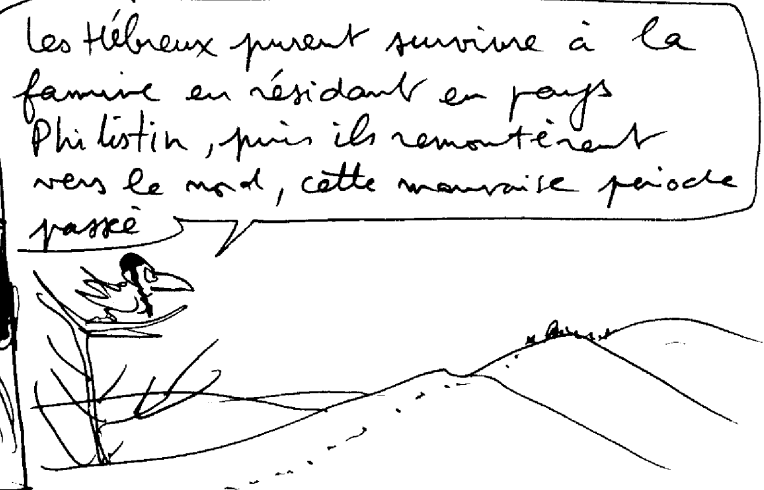 Les Hébreux purent survivre à la
famine en résidant en pays
Philistin, puis ils remontèrent
vers le nord, cette mauvaise période
passée